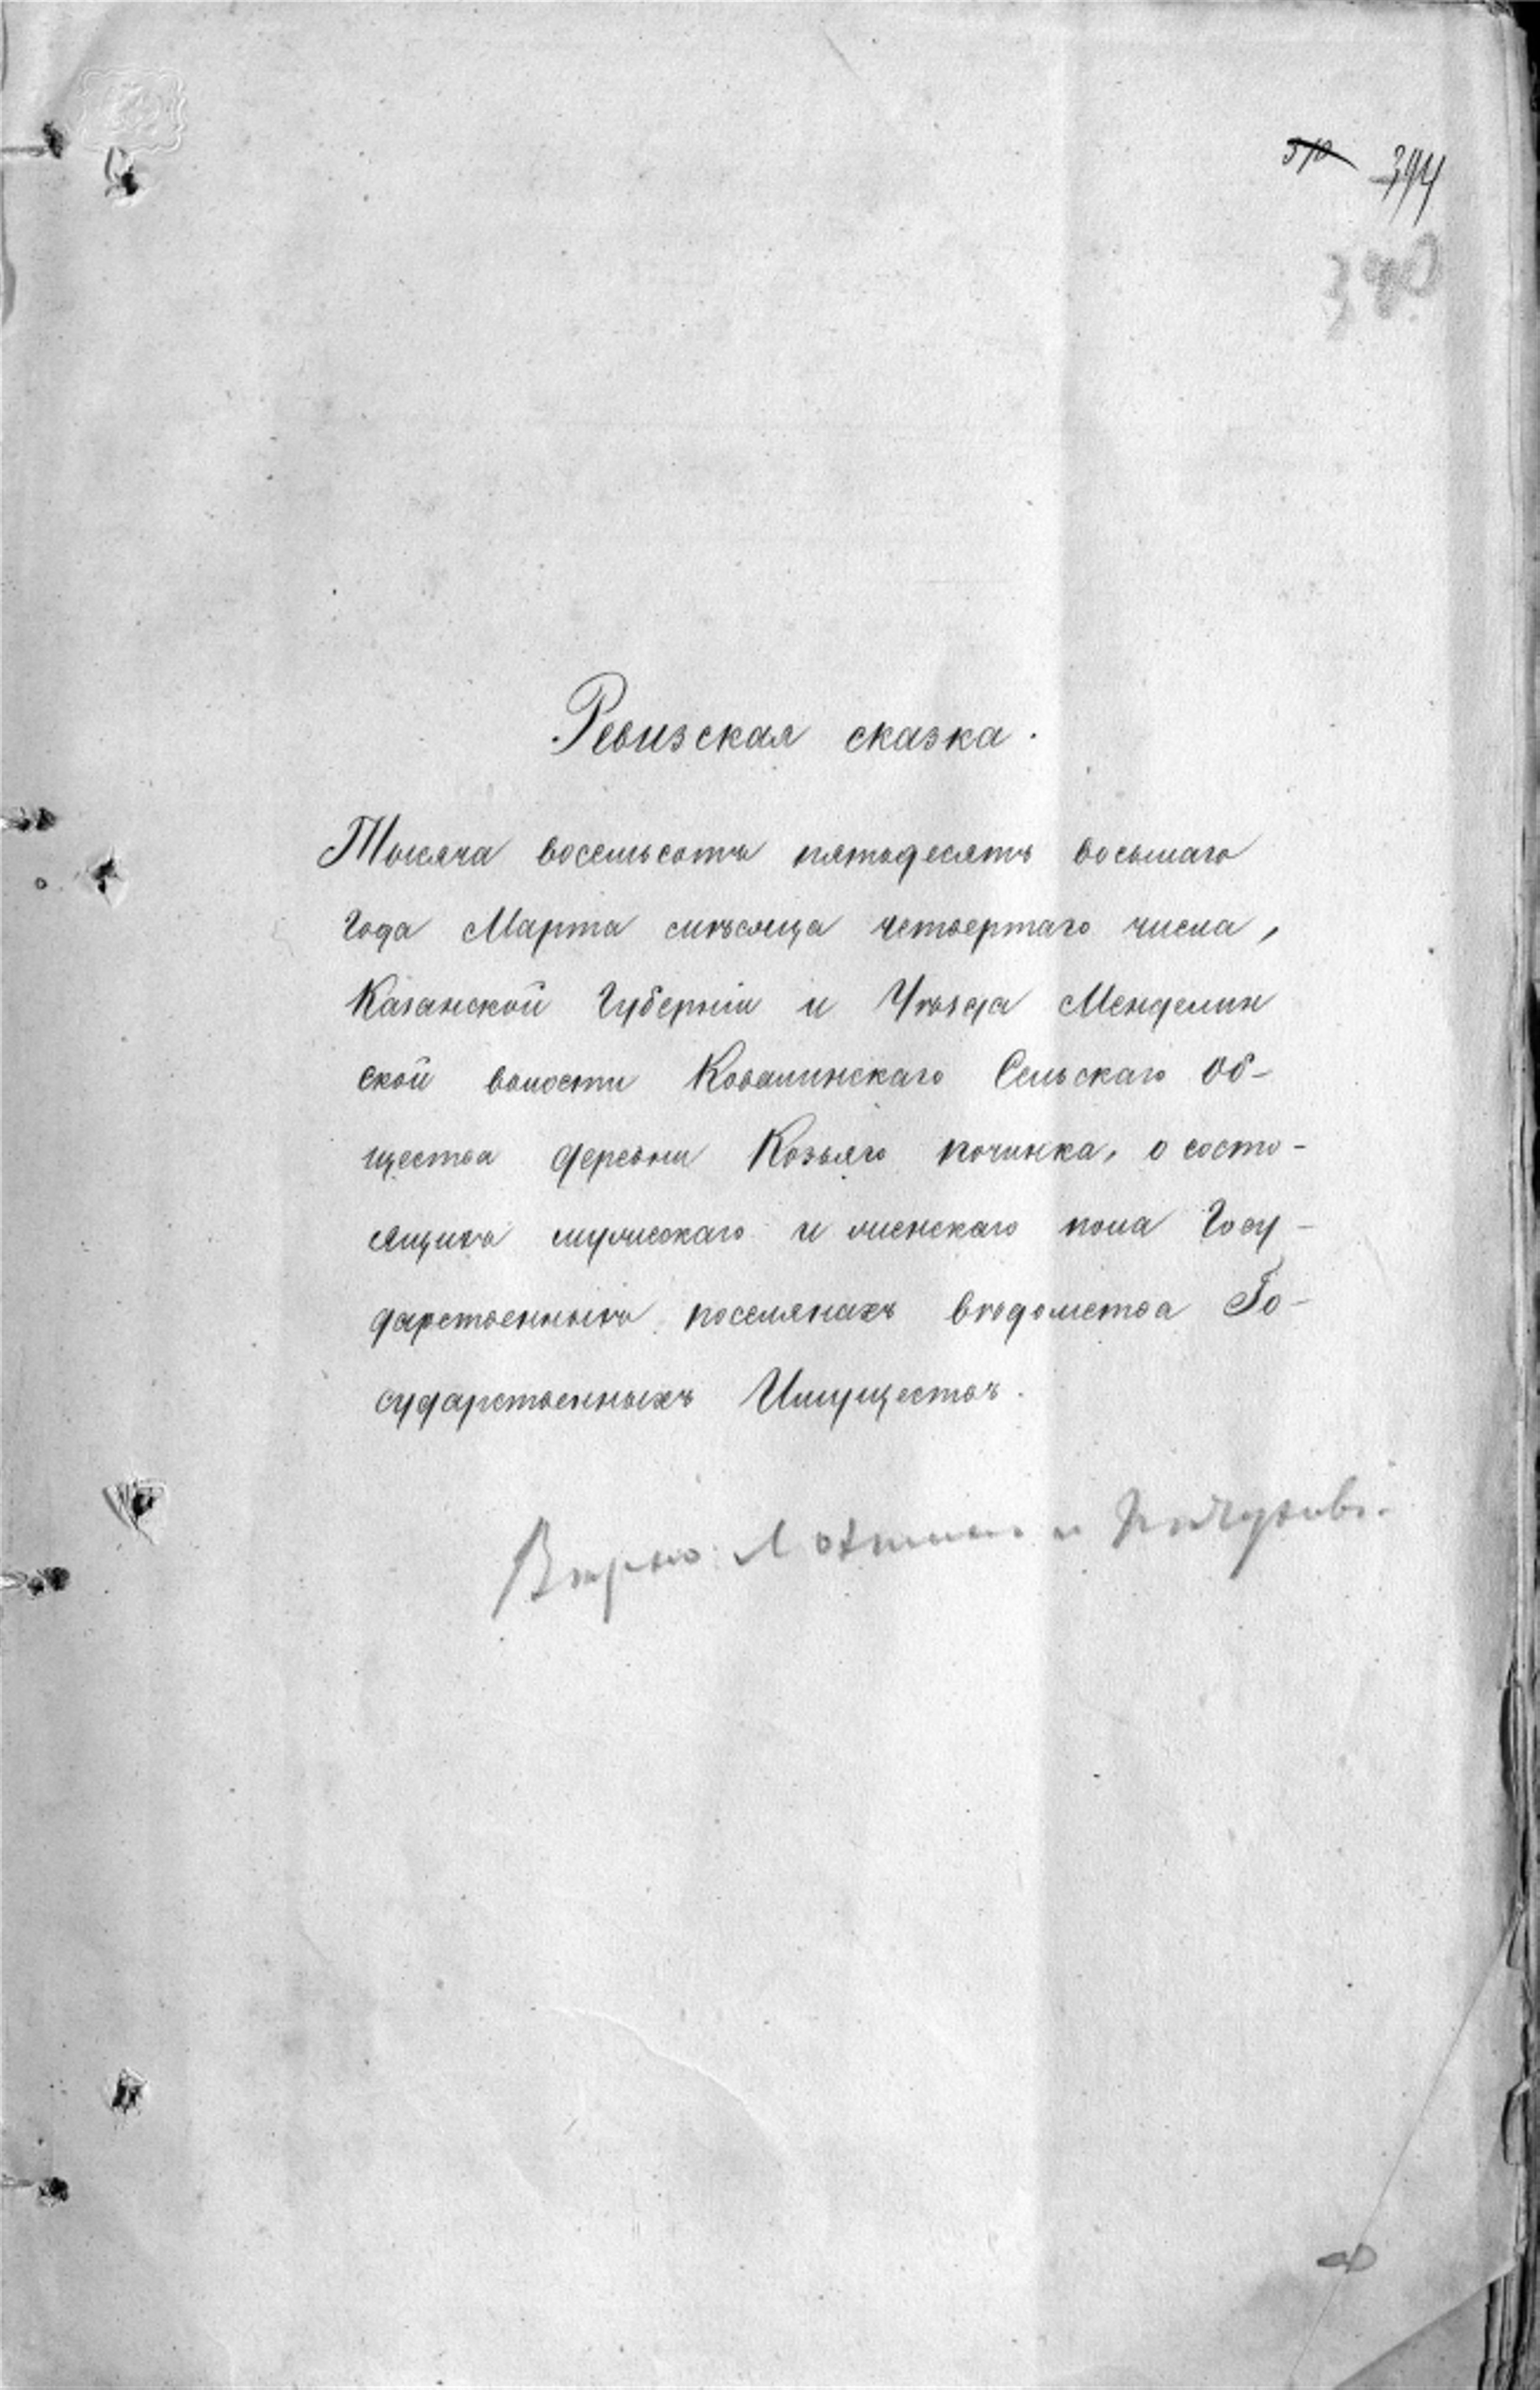 394
Ревизская сказка.
Тысяча восемьсотъ пятьдесятъ восьмаго
Года Марта мѣсяца четвертаго числа,
Казанской Губерніи и Уѣзда Менделин
ской волости Ковалинскаго Сельскаго Об-
щества деревни Козьяго починка, о состо-
ящихъ мужескаго и женскаго пола Госу-
дарственныхъ поселянахъ вѣдомства Го-
сударственныхъ Имуществъ.
Вѣрно: